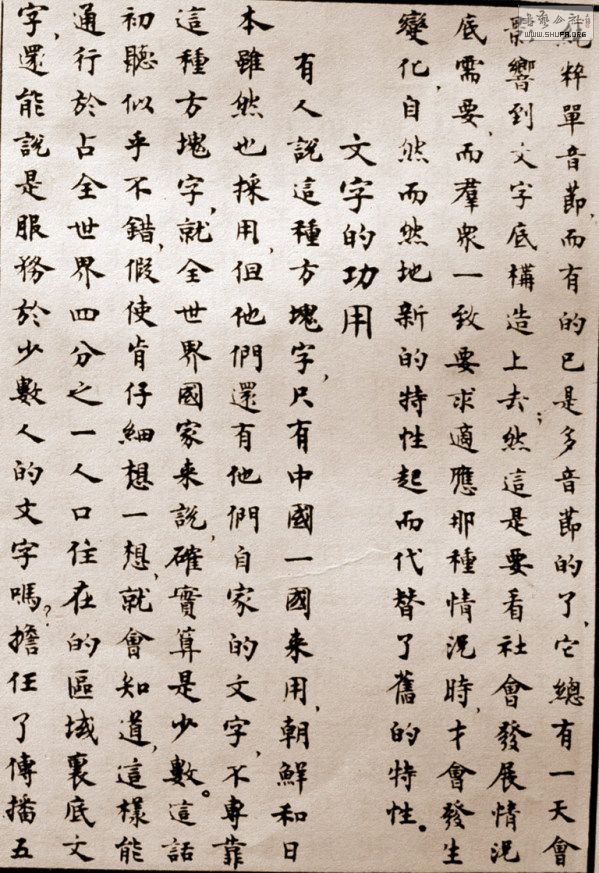 純粹單音節,而有的已是多音節的了,它總有一天會
影響到文字底構造上去;然這是要看社會發展情況
底需要,而羣眾一致要求適應那種情況時,才會發生
變化,自然而然地新的特性起而代替了舊的特性。
文字的功用
有人說這種方塊字,只有中國一國来用,朝鮮和日
本雖然也採用,但他們還有他們自家的文字,不專靠
這種方塊字,就全世界國家来說,確實算是少數。這話
初聽似乎不錯,假使肯仔細想一想,就會知道,這樣能
通行於占全世界四分之一人口住在的區域裏底文
字,還能說是服務於少數人的文字嗎?擔任了傳播五
WWW.SHUFA.ORG